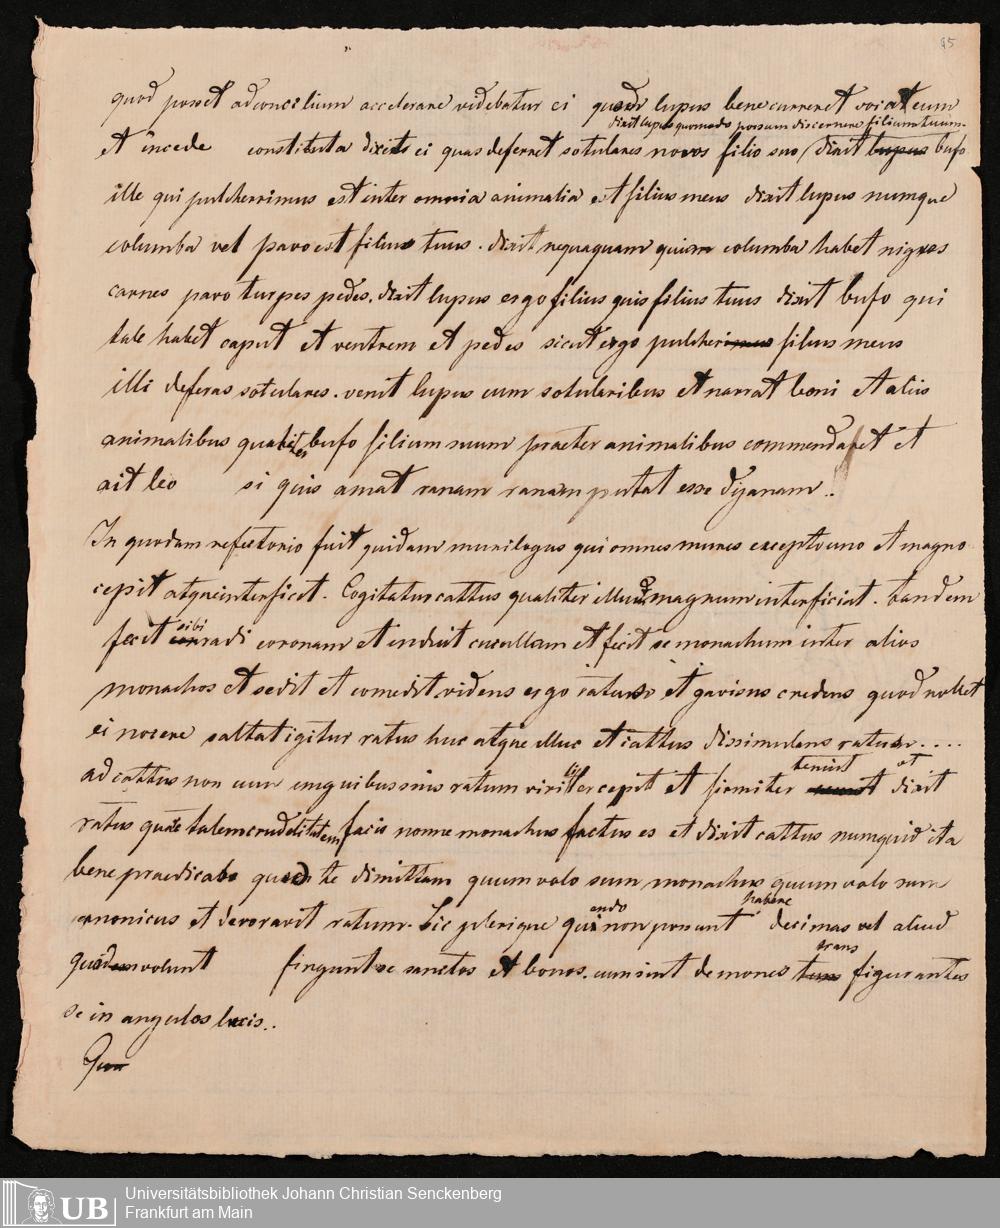 95
quod posset ad concilium accelerare videbatur ei quod lupus bene curreret vocat eum
dixit lupus quomodo possum discernere filium tuum.
et incede constituta dixit ei quas deferret sotulares novos filio suo / dixit lupus bufo
ille qui pulcherrimus est inter omnia animalia est filius meus dixit lupus numque
columba vel pavo est filius tuus. dixit nequaquam quia columba habet nigras
carnes pavo turpes pedes. dixit lupus ergo filius quis filius tuus dixit bufo qui
tale habet caput et ventrem et pedes sicut ego pulcherimus filius meus
illi deferas sotulares. venit lupus cum sotularibus et narrat leoni et aliis
animalibus qualiter bufo filium suum praeter animalibus commendaret et
ait leo si quis amat ranam ranam putat esse dyanam..
In quodam refectorio fuit quidam murilegus qui omnes mures excepto uno et magno
cepit atque interficit. Cogitatur cattus qualiter illud magnum interficiat. tandem
sibi
fecit radi coronam et induit cucullam et fecit se monachum inter alios
monachos et sedit et comedit videns ergo ratus et gavisus credens quod nollet
ei nocere saltat igitur ratus huc atque illuc et cattus dissimulans ratum....
tenuit et
ad cattus non cum unguibus suis ratum viriliter cepit et firmiter dixit
ratus quare talem crudelitatem facis nonne monachus factus es et dixit cattus numquid ita
bene praedicabo quod te dimittam quum volo sum monachus quum volo sum
endo habere
canonicus et devoravit ratum. Sic plerique qui non possunt decimas vel aliud
trans
quod volunt fingunt se sanctos et bonos. cum sint demones figurantes
se in angulos lucis..
Quu
UB
Universitätsbibliothek Johann Christian Senckenberg
Frankfurt am Main